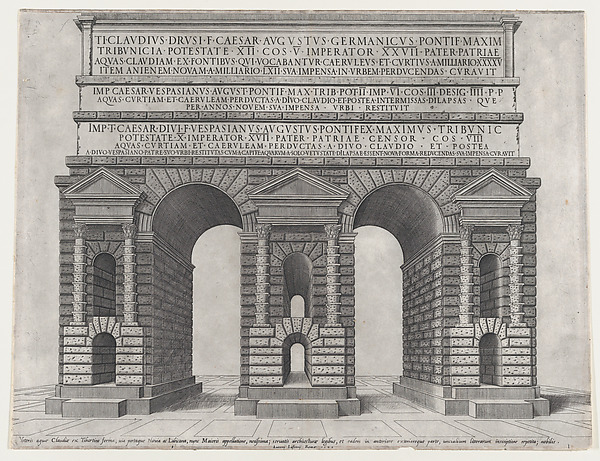 TI·CLAVDIVS·DRVSI·F·CAESAR·AVGVSTVS·GERMANICVS·PONTIF·MAXIM
TRIBVNICIA·POTESTATE·XII·COS·V·IMPERATOR·XXVII·PATER·PATRIAE
AQVAS·CLAVDIAM·EX·FONTIBVS·QVI·VOCABANTVR·CAERVLEVS·ET·CVRTIVS·A·MILLIARIO·XXXXV
ITEM·ANIENEM·NOVAM·A·MILLIARIO·LXII·SVA·IMPENSA·IN·VRBEM·PERDVCENDAS·CVRAVIT
IMP·CAESAR·VESPASIANVS·AVGVST·PONTIF·MAX·TRIB·POT·II·IMP·VI·COS·III·DESIG·IIII·P·P
AQVAS·CVRTIAM·ET·CAERVLEAM·PERDVCTAS·A·DIVO·CLAVDIO·ET·POSTEA·INTERMISSAS·DILAPSAS·QVE
PER·ANNOS·NOVEM·SVA·IMPENSA·VRBI·RESTITVIT
IMP·T·CAESAR·DIVI·F·VESPASIANVS·AVGVSTVS·PONTIFEX·MAXIMVS·TRIBVNIC
POTESTATE·X·IMPERATOR·XVII·PATER·PATRIAE·CENSOR·COS·VIII
AQVAS·CVRTIAM·ET·CAERVLEAM·PERDVCTAS·A·DIVO·CLAVDIO·ET·POSTEA
A·DIVO·VESPASIANO·PATRE·SVO·VRBI·RESTITVTAS·CVM·A·CAPITE·AQVARVM·A·SOLO·VETVSTATE·DILAPSAE·ESSENT·NOVA·FORMA·REDVCENDAS·SVA·IMPENSA·CVRAVIT
aquae Claudiae ex Tiburtino ferme, via portaque Nunc Maioris appellatione, notissima; servatis architecturae legibus, et eadem in anteriore exterioreque parte, uncialium literarum inscriptione repetita; nobilis.